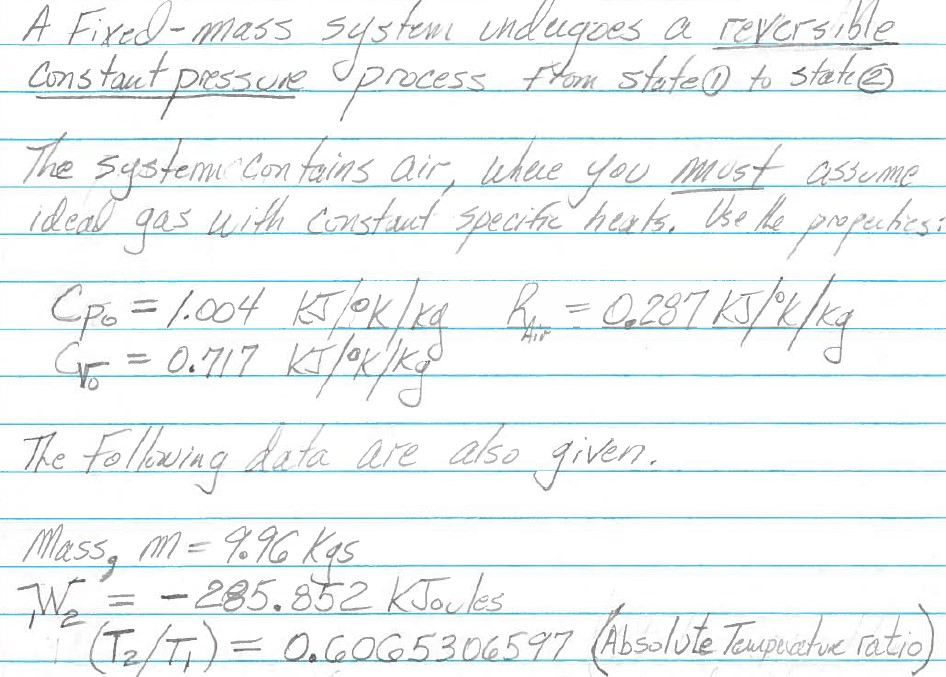 A Fixed-mass system undergoes a reversible
constant pressure process from state ① to state ②
The system contains air, where you must assume
ideal gas with constant specific heats. Use the properties:
Cpo = 1.004 KJ/°K/kg R Air = 0.287 KJ/°K/kg
Cvo = 0.717 KJ/°K/kg
The Following data are also given.
Mass, m = 9.96 Kgs
1W2 = -285.852 KJoules
(T2/T1) = 0.6065306597 (Absolute Temperature ratio)